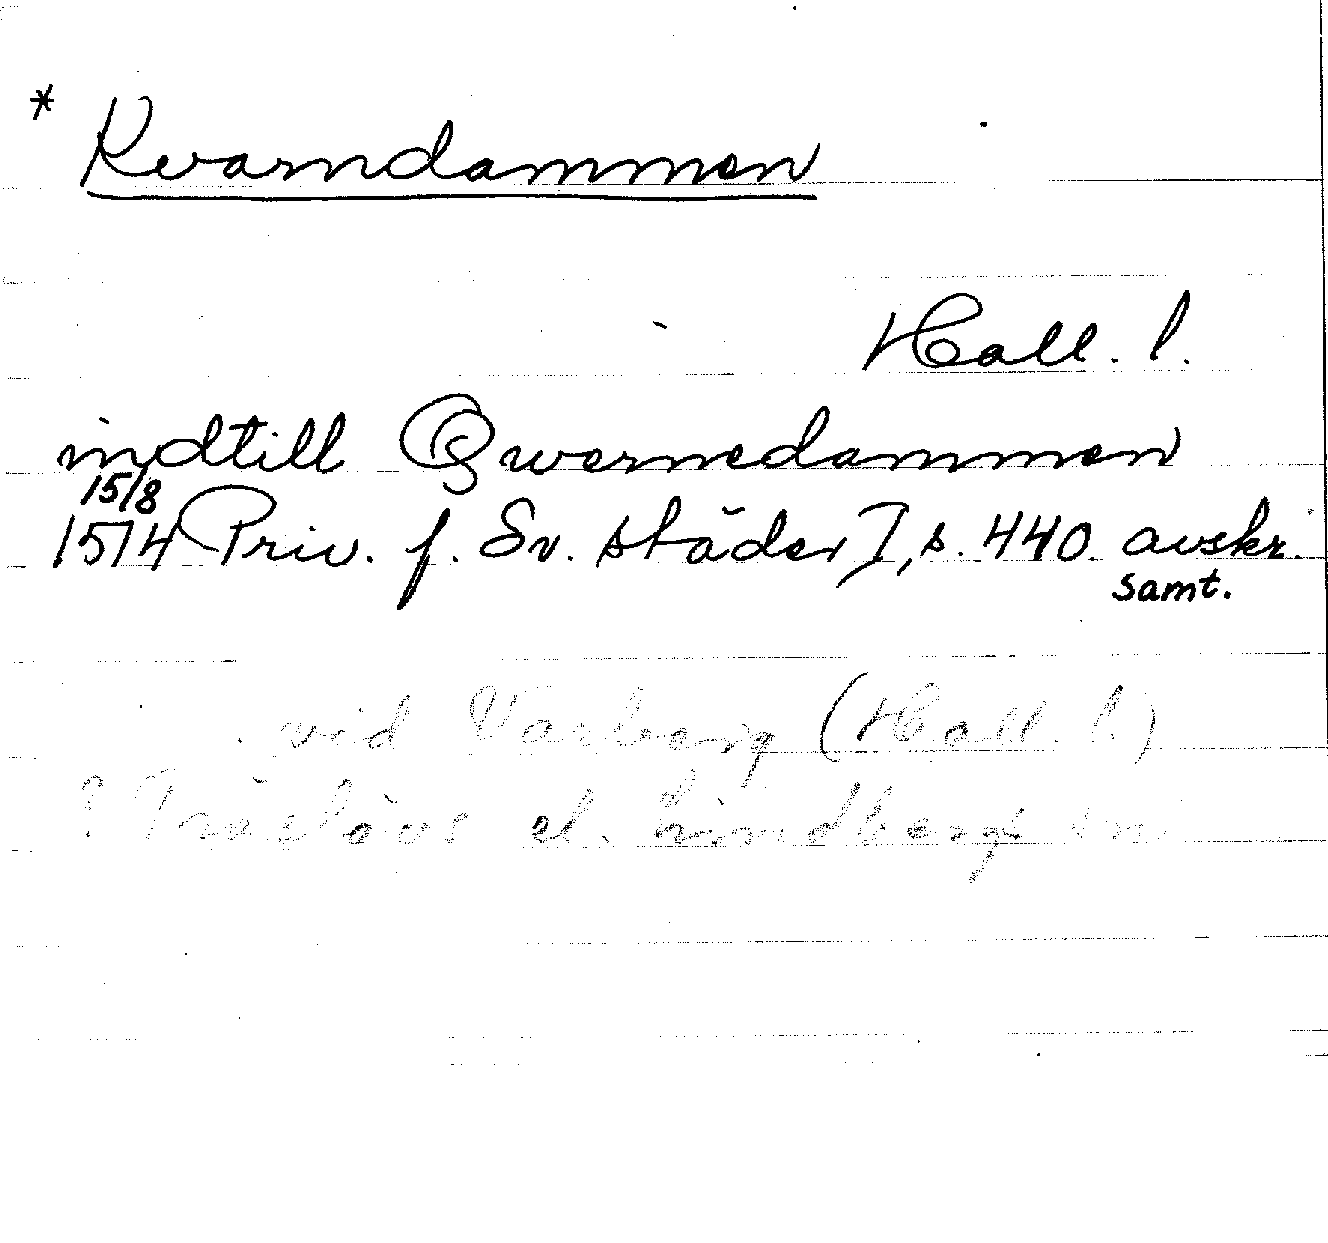 * Kvarndammen
Hall. l.
indtill Qwernedammen
15/8
1574 Priv. f. Sv. städer I, s. 440 avskr.
samt.
vid Varberg (Hall. l.)
? Träslövs el. Lindberg sn